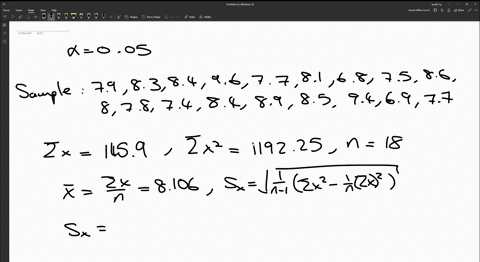 α = 0.05
Sample : 7.9, 8.3, 8.4, 9.6, 7.7, 8.1, 6.8, 7.5, 8.6,
8, 7.8, 7.4, 8.4, 8.9, 8.5, 9.4, 6.9, 7.7
Σx = 145.9 , Σx² = 1192.25 , n = 18
x̄ = Σx/n = 8.106 , Sx = √(1/(n-1) (Σx² - 1/n (Σx)²))
Sx =